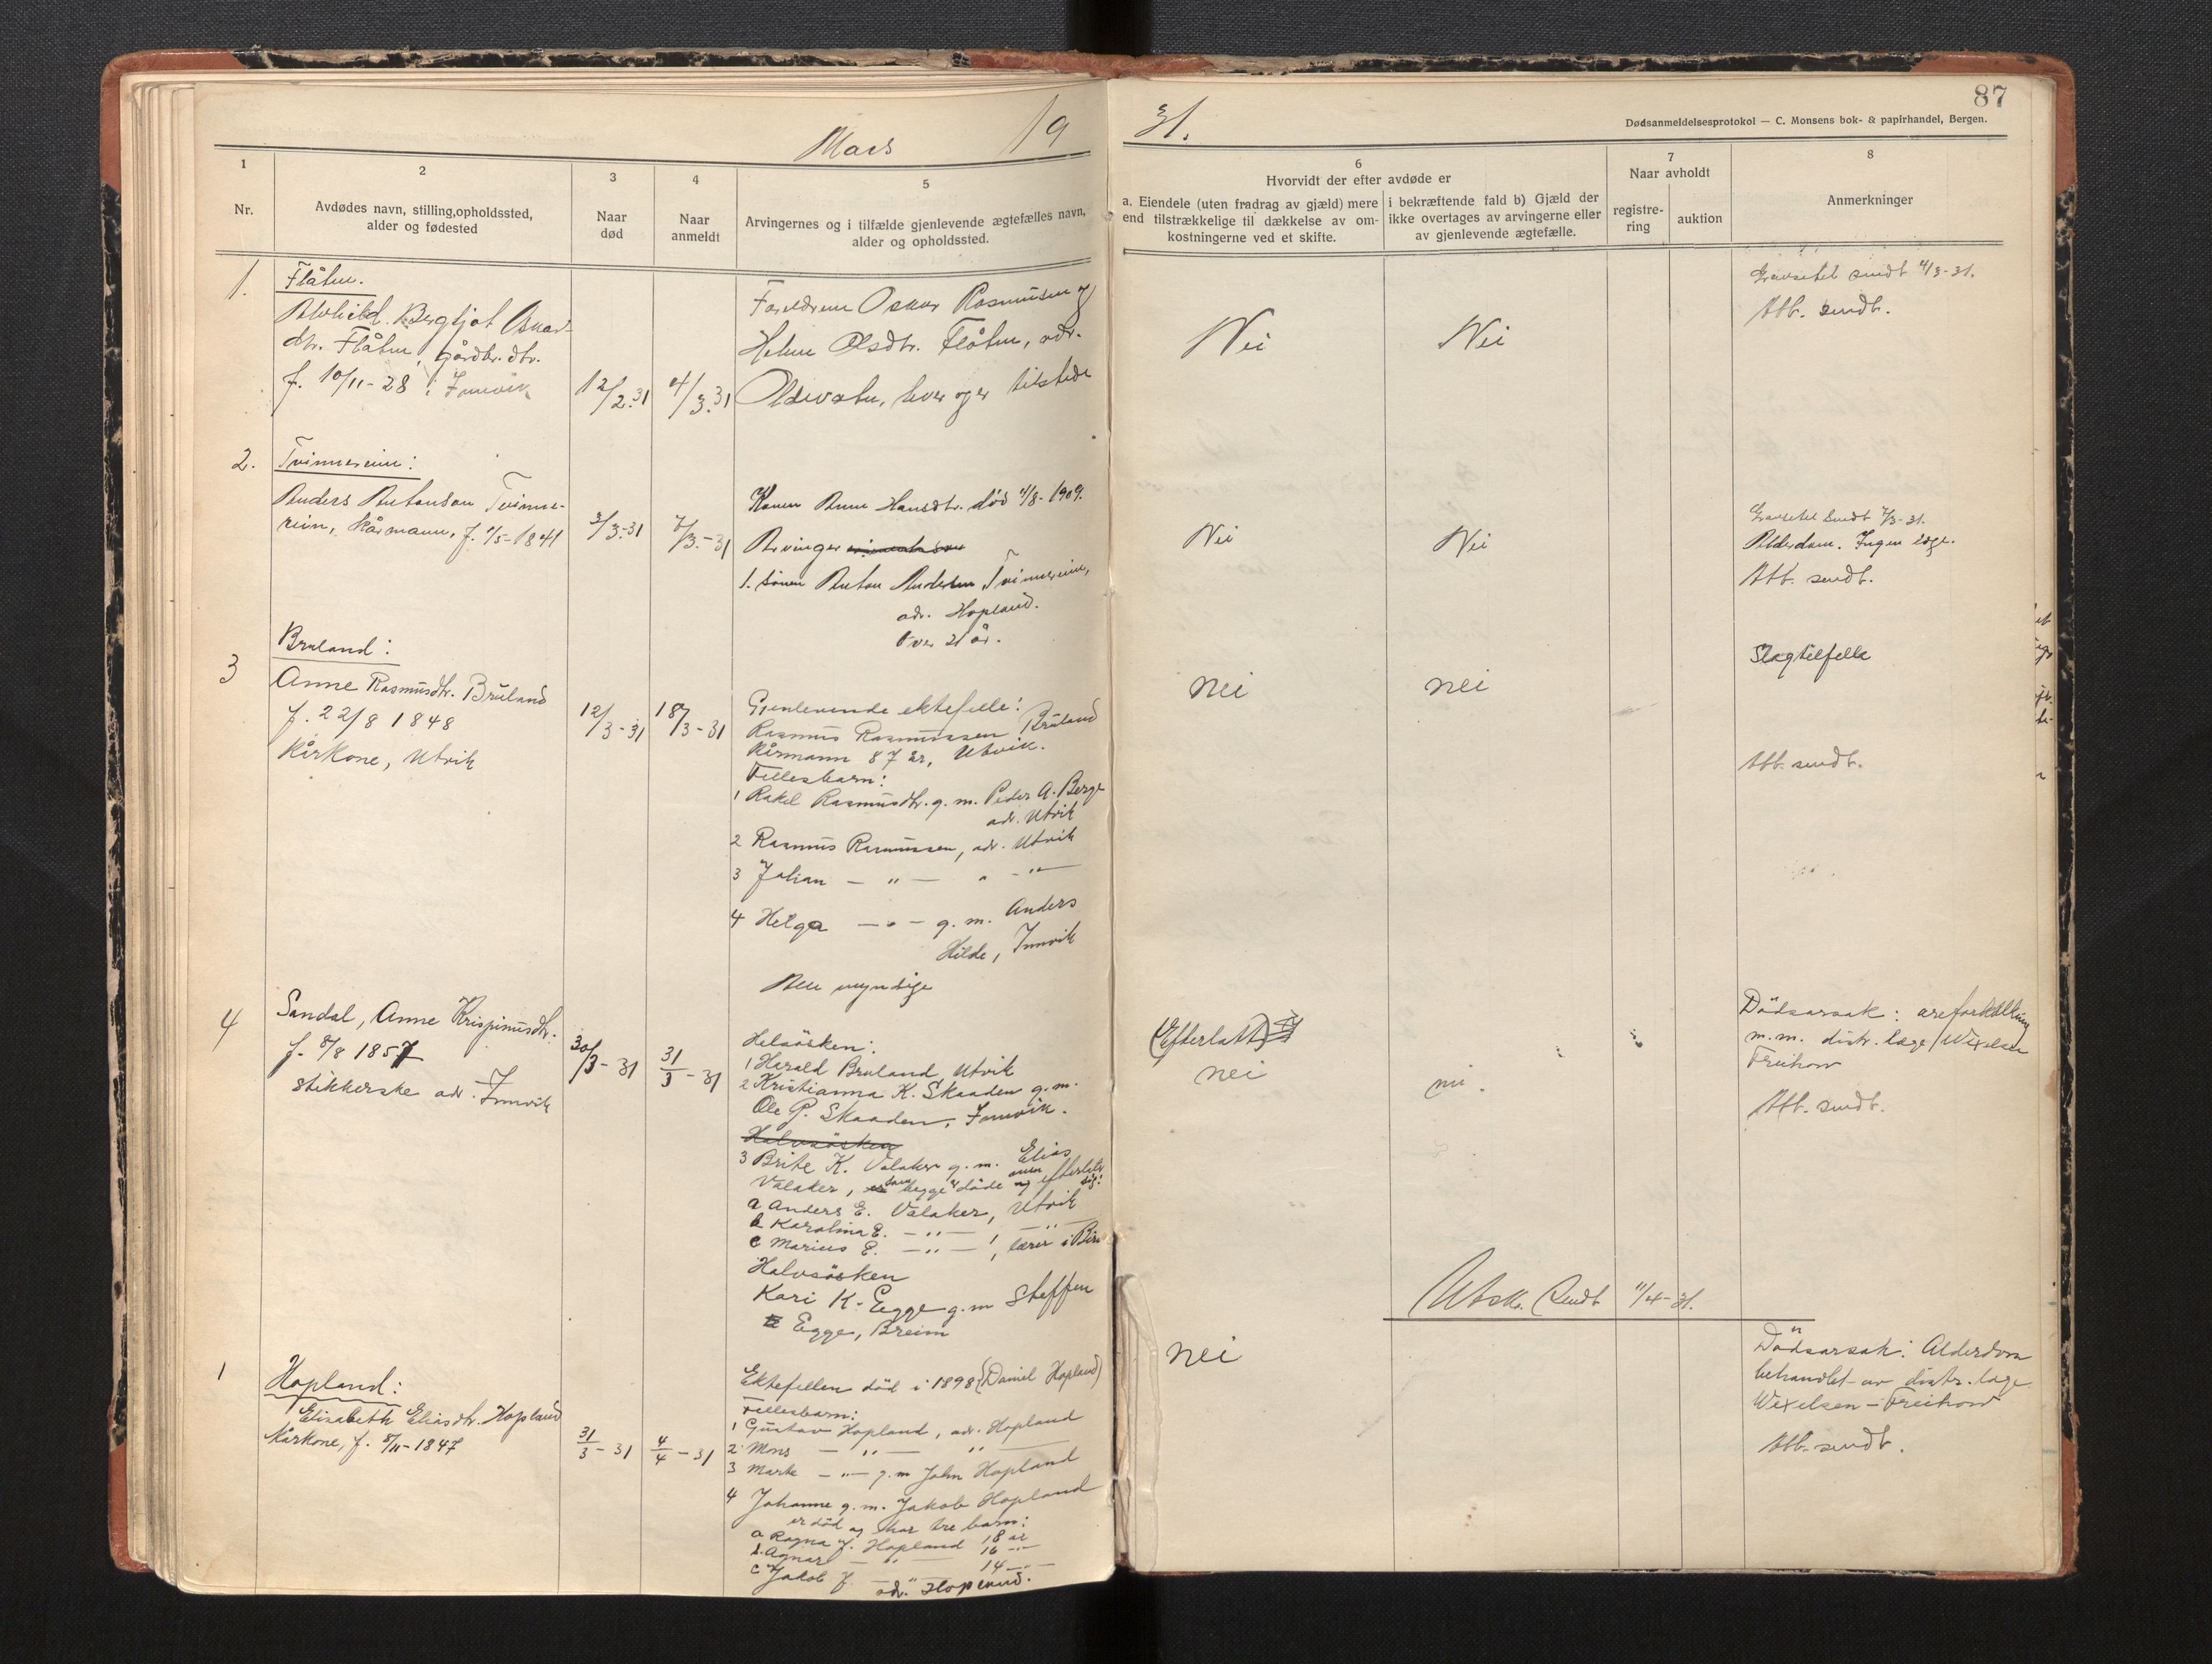 87
Dødsanmeldelsesprotokol — C. Monsens bok- & papirhandel, Bergen.
Mars 19 31.
1
2
3
4
5
6
7
8
Nr.
Avdødes navn, stilling, opholdssted,
alder og fødested
Naar
død
Naar
anmeldt
Arvingernes og i tilfælde gjenlevende ægtefælles navn,
alder og opholdssted.
Hvorvidt der efter avdøde er
a. Eiendele (uten fradrag av gjæld) mere
end tilstrækkelige til dækkelse av om-
kostningerne ved et skifte.
i bekræftende fald b) Gjæld der
ikke overtages av arvingerne eller
av gjenlevende ægtefælle.
Naar avholdt
registre-
ring
auktion
Anmerkninger
1.
Flåten.
Alvhild Bergljot Oskar-
dtr. Flåten, gårdbr. dtr.
f. 10/11-28 i Innvik
12/2.31
4/3.31
Foreldrene Oskar Rasmussen og
Helene Olsdtr. Flåten, adr.
Oldevatn, lever og er tilstede
Nei
Nei
sendt 4/3-31.
Att. sendt.
2.
Tvinnereim:
Anders Antonson Tvinne-
reim, kårmann, f. /5-1841
3/3-31
7/3-31
Konen Anne Hansdtr. død 4/8-1909.
Arvinger
1. sønen Anton Andersen Tvinnereim,
adr. Hopland.
Over 21 år.
Nei
Nei
sendt 7/3-31.
Alderdom. Ingen læge.
Att. sendt.
3
Bruland:
Anne Rasmusdtr. Bruland
f. 22/8 1848
Kårkone, Utvik
12/3-31
18/3-31
Gjenlevende ektefelle:
Rasmus Rasmussen Bruland
Kårmann 87 år, Utvik.
Fellesbarn:
1 Rakel Rasmusdtr. g. m. Peder A. Berge
adr. Utvik
2 Rasmus Rasmussen, adr. Utvik
3 Johan — " — " - " —
4 Helga — " — g. m. Anders
Hilde, Innvik
Alle myndige
nei
nei
Slagtilfelle
Att. sendt.
4
Sandal, Anne Krispinusdtr.
f. 8/8 1857
stikkerske adr. Innvik
30/3-31
31/3-31
Helsøsken:
1 Harald Bruland, Utvik
2 Kristianna K. Skaaden g. m.
Ole P. Skaaden, Innvik.
Halvsøsken
3 Brite K. Valaker g. m. Elias
Valaker, som begge er døde men efterlatt sig:
a Anders E. Valaker, Utvik
b Karolina E. — " — , — " —
c Marius E. — " — , lærer i
Halvsøsken
Kari K. Egge g. m Steffen
Egge, Breim
(Efterlatt)
nei
nei.
Dödsarsak: areforkalkning
m. m. distr. læge Wexelsen
Freihow
Att. sendt.
Utskr. sendt 11/4-31.
1
Hopland:
Elisabeth Eliasdtr. Hopland
Kårkone, f. 8/11-1847
31/3-31
4/4-31
Ektefellen død i 1898 (Daniel Hopland)
Fellesbarn:
1 Gustav Hopland, adr. Hopland
2 Mons — " — " —
3 Marte — " — g. m John Hopland
4 Johanne g. m. Jakob Hopland
er död og har tre barn:
a Ragna J. Hopland 18 år
b. Agnar — " — 16 — " —
c Jakob J. — " — 14 — " —
adr. Hopland.
nei
Dödsarsak: Alderdom
behandlet av distr. læge
Wexelsen - Freihow
Att. sendt.